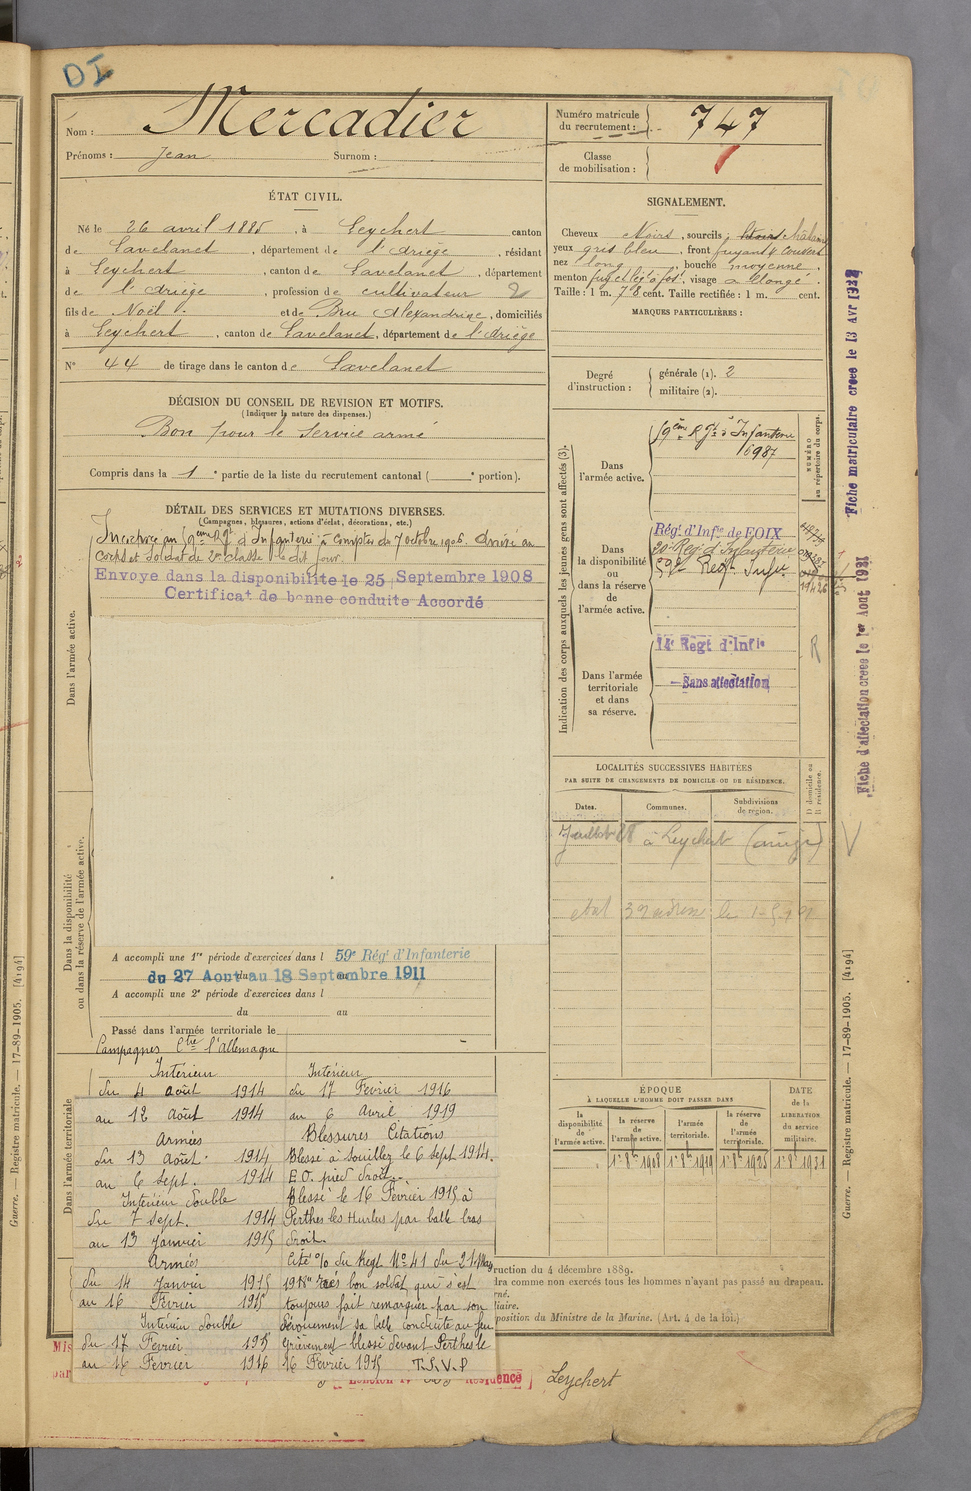 DI
Nom : Mercadier
Prénoms : Jean Surnom :
Numéro matricule du recrutement : 747
Classe de mobilisation :
ÉTAT CIVIL.
Né le 26 avril 1885, à Leychert canton
de Lavelanet, département de l'Ariège, résidant
à Leychert, canton de Lavelanet, département
de l'Ariège, profession de cultivateur 2
fils de Noël et de Bru Alexandrine, domiciliés
à Leychert, canton de Lavelanet, département de l'Ariège
N° 44 de tirage dans le canton de Lavelanet
DÉCISION DU CONSEIL DE REVISION ET MOTIFS.
(Indiquer la nature des dispenses.)
Bon pour le service armé
Compris dans la 1e partie de la liste du recrutement cantonal ( e portion).
DÉTAIL DES SERVICES ET MUTATIONS DIVERSES.
(Campagnes, blessures, actions d'éclat, décorations, etc.)
Incorporé au 59ème Rgt d'Infanterie à compter du 7 octobre 1906. Arrivé au
corps et soldat de 2me classe le dit jour.
Envoyé dans la disponibilité le 25 Septembre 1908
Certificat de bonne conduite Accordé
Dans l'armée active.
Dans la disponibilité
ou dans la réserve de l'armée active.
A accompli une 1re période d'exercices dans l 59e Régt d'Infanterie
du 27 Aout au 18 Septembre 1911
A accompli une 2e période d'exercices dans l
du au
Passé dans l'armée territoriale le
Dans l'armée territoriale
Campagnes Ctre l'Allemagne
Intérieur
du 4 août 1914
au 12 Août 1914
Armées
du 13 août 1914
au 6 sept. 1914
Intérieur double
du 7 sept. 1914
au 13 janvier 1915
Armées
du 14 janvier 1915
au 16 Février 1915
Intérieur double
du 17 Fevrier 1915
au 16 Fevrier 1916
Intérieur
du 17 Fevrier 1916
au 6 Avril 1919
Blessures Citations
Blessé à Souillez le 6 sept 1914.
E.O. pied droit.
Blessé le 16 Février 1915 à
Perthes les Hurlus par balle bras
droit.
Cité % du Regt N° 41 du 21 May
1918 " très bon soldat qui s'est
toujours fait remarquer par son
dévouement sa belle conduite au feu
grièvement blessé devant Perthes le
16 Fevrier 1915 T.S.V.P
SIGNALEMENT.
Cheveux Noirs, sourcils : Noirs châtains
yeux gris bleu, front fuyant & couvert
nez long, bouche moyenne,
menton visage allongé.
Taille : 1 m. 78 cent. Taille rectifiée : 1 m. cent.
MARQUES PARTICULIÈRES :
Degré d'instruction : générale (1). 2
militaire (2).
Indication des corps auxquels les jeunes gens sont affectés (3).
NUMÉRO au répertoire du corps.
Dans l'armée active.
59ème Rgt d'Infanterie
16987
Dans la disponibilité ou dans la réserve de l'armée active.
Régt d'Infie de FOIX
59e Regt Infie
Dans l'armée territoriale et dans sa réserve.
14e Regt d'Infie
Sans affectation
R
LOCALITÉS SUCCESSIVES HABITÉES
PAR SUITE DE CHANGEMENTS DE DOMICILE OU DE RÉSIDENCE.
Dates. Communes. Subdivisions de région. D domicile ou R résidence.
Juillet 28 à Leychert (Ariège)
ÉPOQUE
À LAQUELLE L'HOMME DOIT PASSER DANS
la disponibilité de l'armée active. la réserve de l'armée active. l'armée territoriale. la réserve de l'armée territoriale.
DATE de la LIBÉRATION du service militaire.
1r 8bre 1908 1r 8bre 1919 1r 8bre 1925 1r 8bre 1931
ruction du 4 décembre 1889.
dra comme non exercés tous les hommes n'ayant pas passé au drapeau.
rné.
liaire.
position du Ministre de la Marine. (Art. 4 de la loi.)
Résidence
Leychert
Fiche matriculaire créée le 13 Avr
Fiche d'affectation créée le 1er Aout 1931
Guerre. — Registre matricule. — 17-89-1905. [4194]
Guerre. — Registre matricule. — 17-89-1905. [4194]